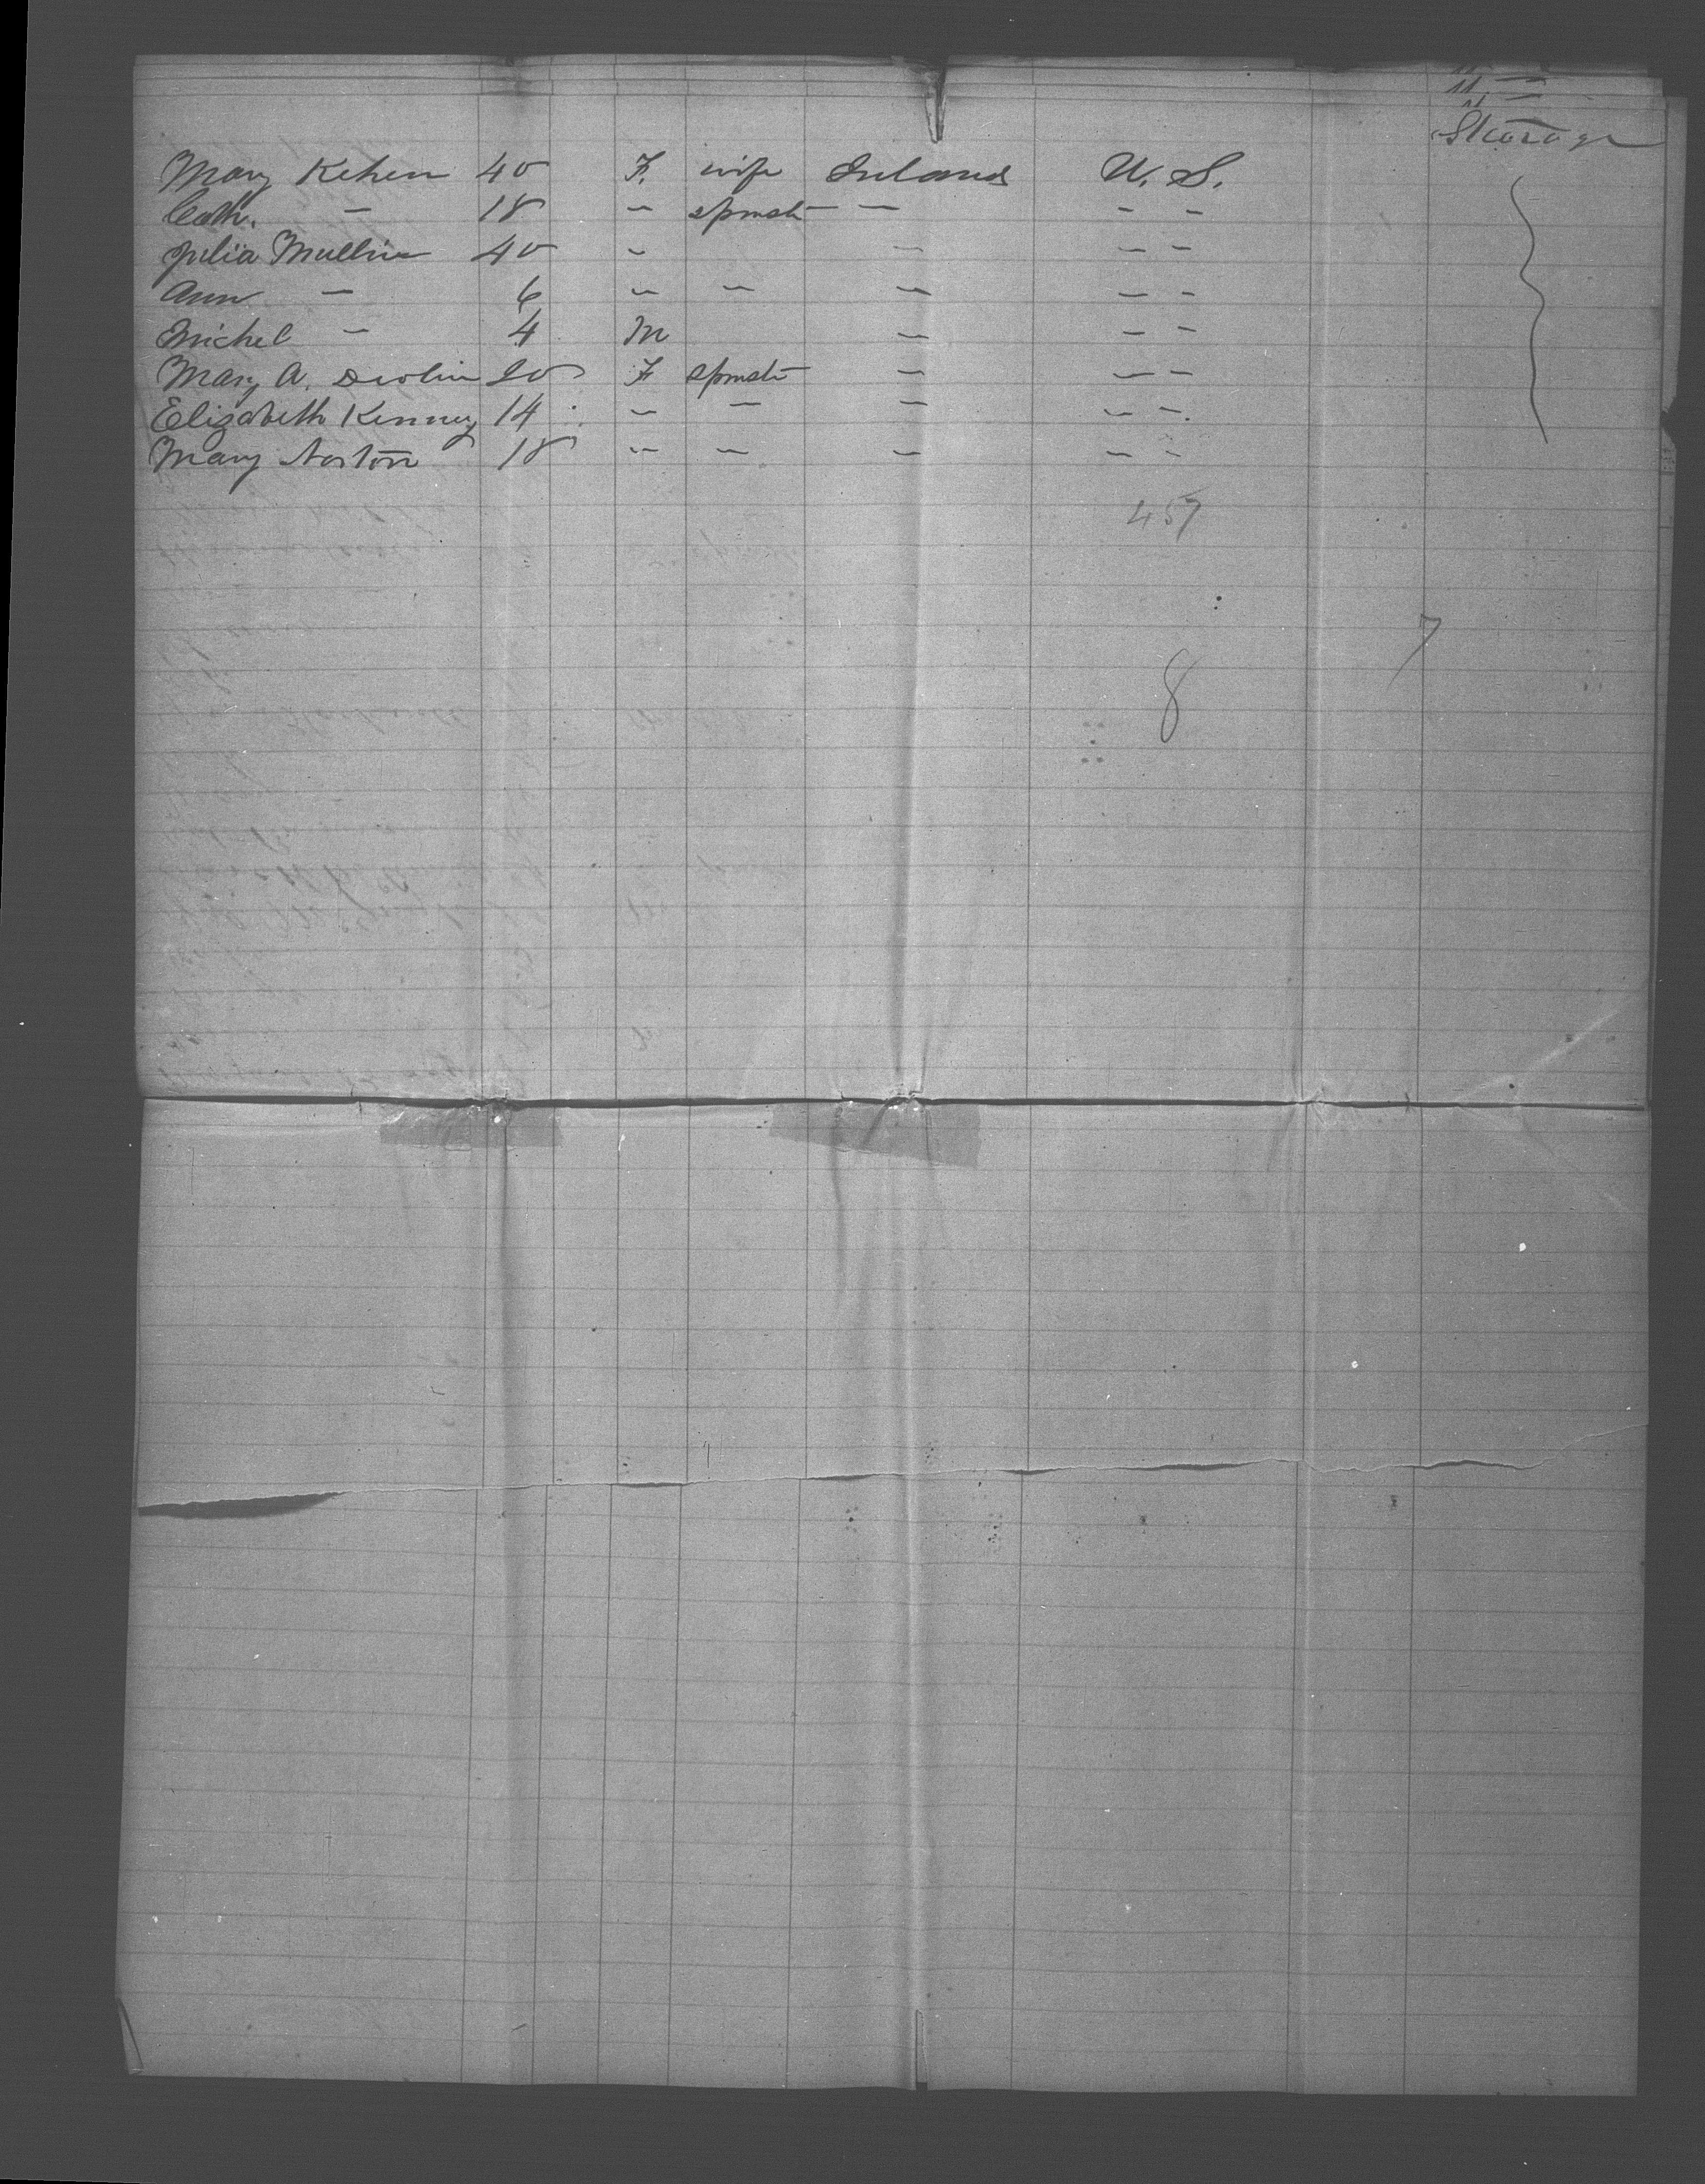 Steerage
Mary Kehen 40 F. wife Ireland U. S.
Cath. – 18 – spinster – – –
Julia Mullin 40 – – – –
Ann – 6 – – – – –
Michel – 4 M – – –
Mary A. Devlin 20 F spinster – – –
Elizabeth Kenney 14 – – – – –
Mary Norton 18 – – – – –
457
7
8